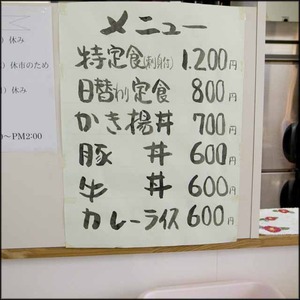 ）休み
）休市のため
）休み
0～PM2:00
メニュー
特定食(刺身付) 1.200円
日替わり定食 800円
かき揚丼 700円
豚丼 600円
牛丼 600円
カレーライス 600円